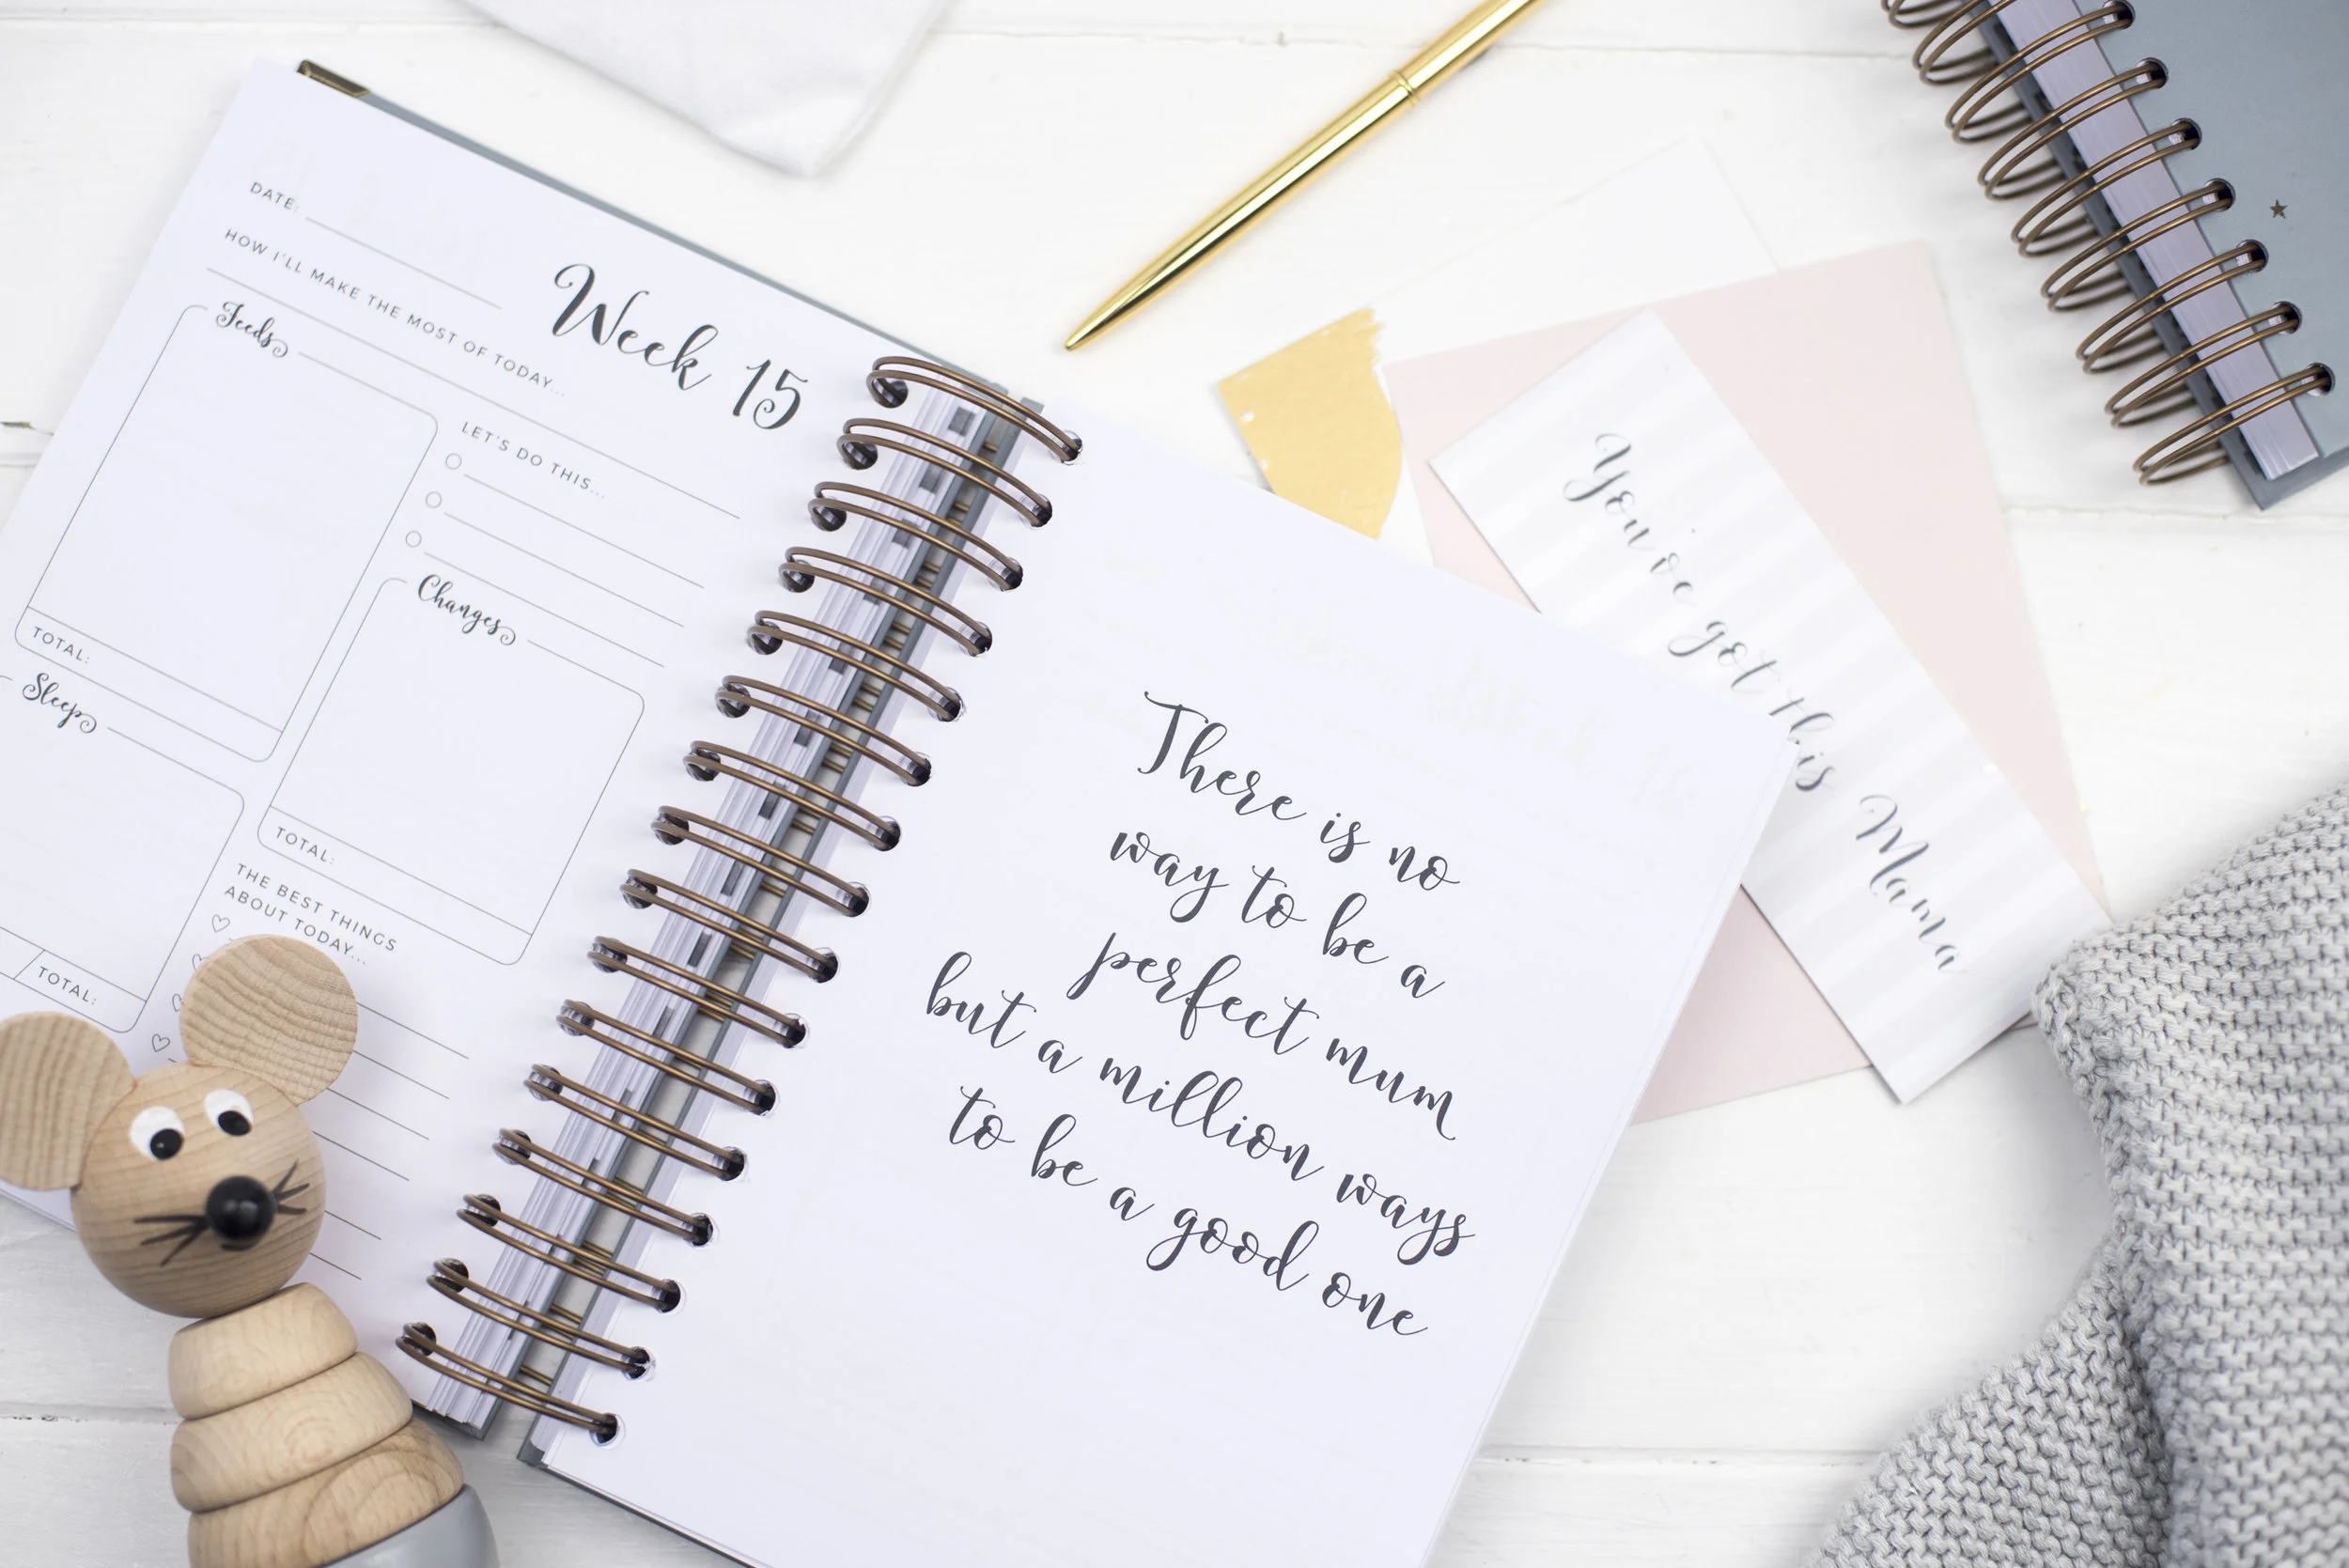 DATE:
Week 15
HOW I'LL MAKE THE MOST OF TODAY...
Feeds
TOTAL:
LET'S DO THIS...
Changes
TOTAL:
Sleep
TOTAL:
THE BEST THINGS
ABOUT TODAY...
There is no
way to be a
perfect mum
but a million ways
to be a good one
You've got this Mama